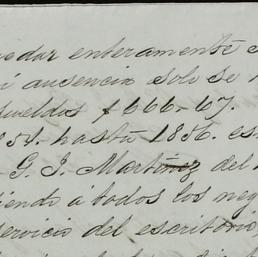 quedar enteramente
mi ausencia solo se
sueldos $666.-67.
1854. hasta 1856. es
G. J. Martinez del
diendo á todos los neg
servicio del escritorio